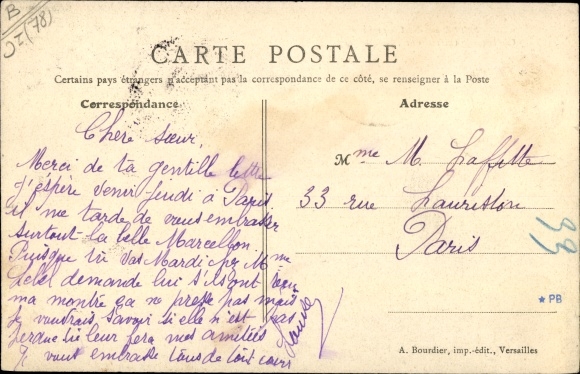 B
OI (78)
CARTE POSTALE
Certains pays étrangers n'acceptant pas la correspondance de ce côté, se renseigner à la Poste
Correspondance
Adresse
Chere sœur,
Merci de ta gentille lettre
J'espère venir Jeudi à Paris
il me tarde de vous embrasser
surtout la belle Marcelle
Puisque tu vas Mardi chez Mme
Lebel demande lui s'ils ont reçu
ma montre ça ne presse pas mais
Je voudrais savoir si elle n'est pas
perdue tu leur fera mes amitiés
Je vous embrasse tous de tout cœur
Mme M. Laffitte
33 rue Lauriston
Paris
33
★ PB
A. Bourdier, imp.-édit., Versailles